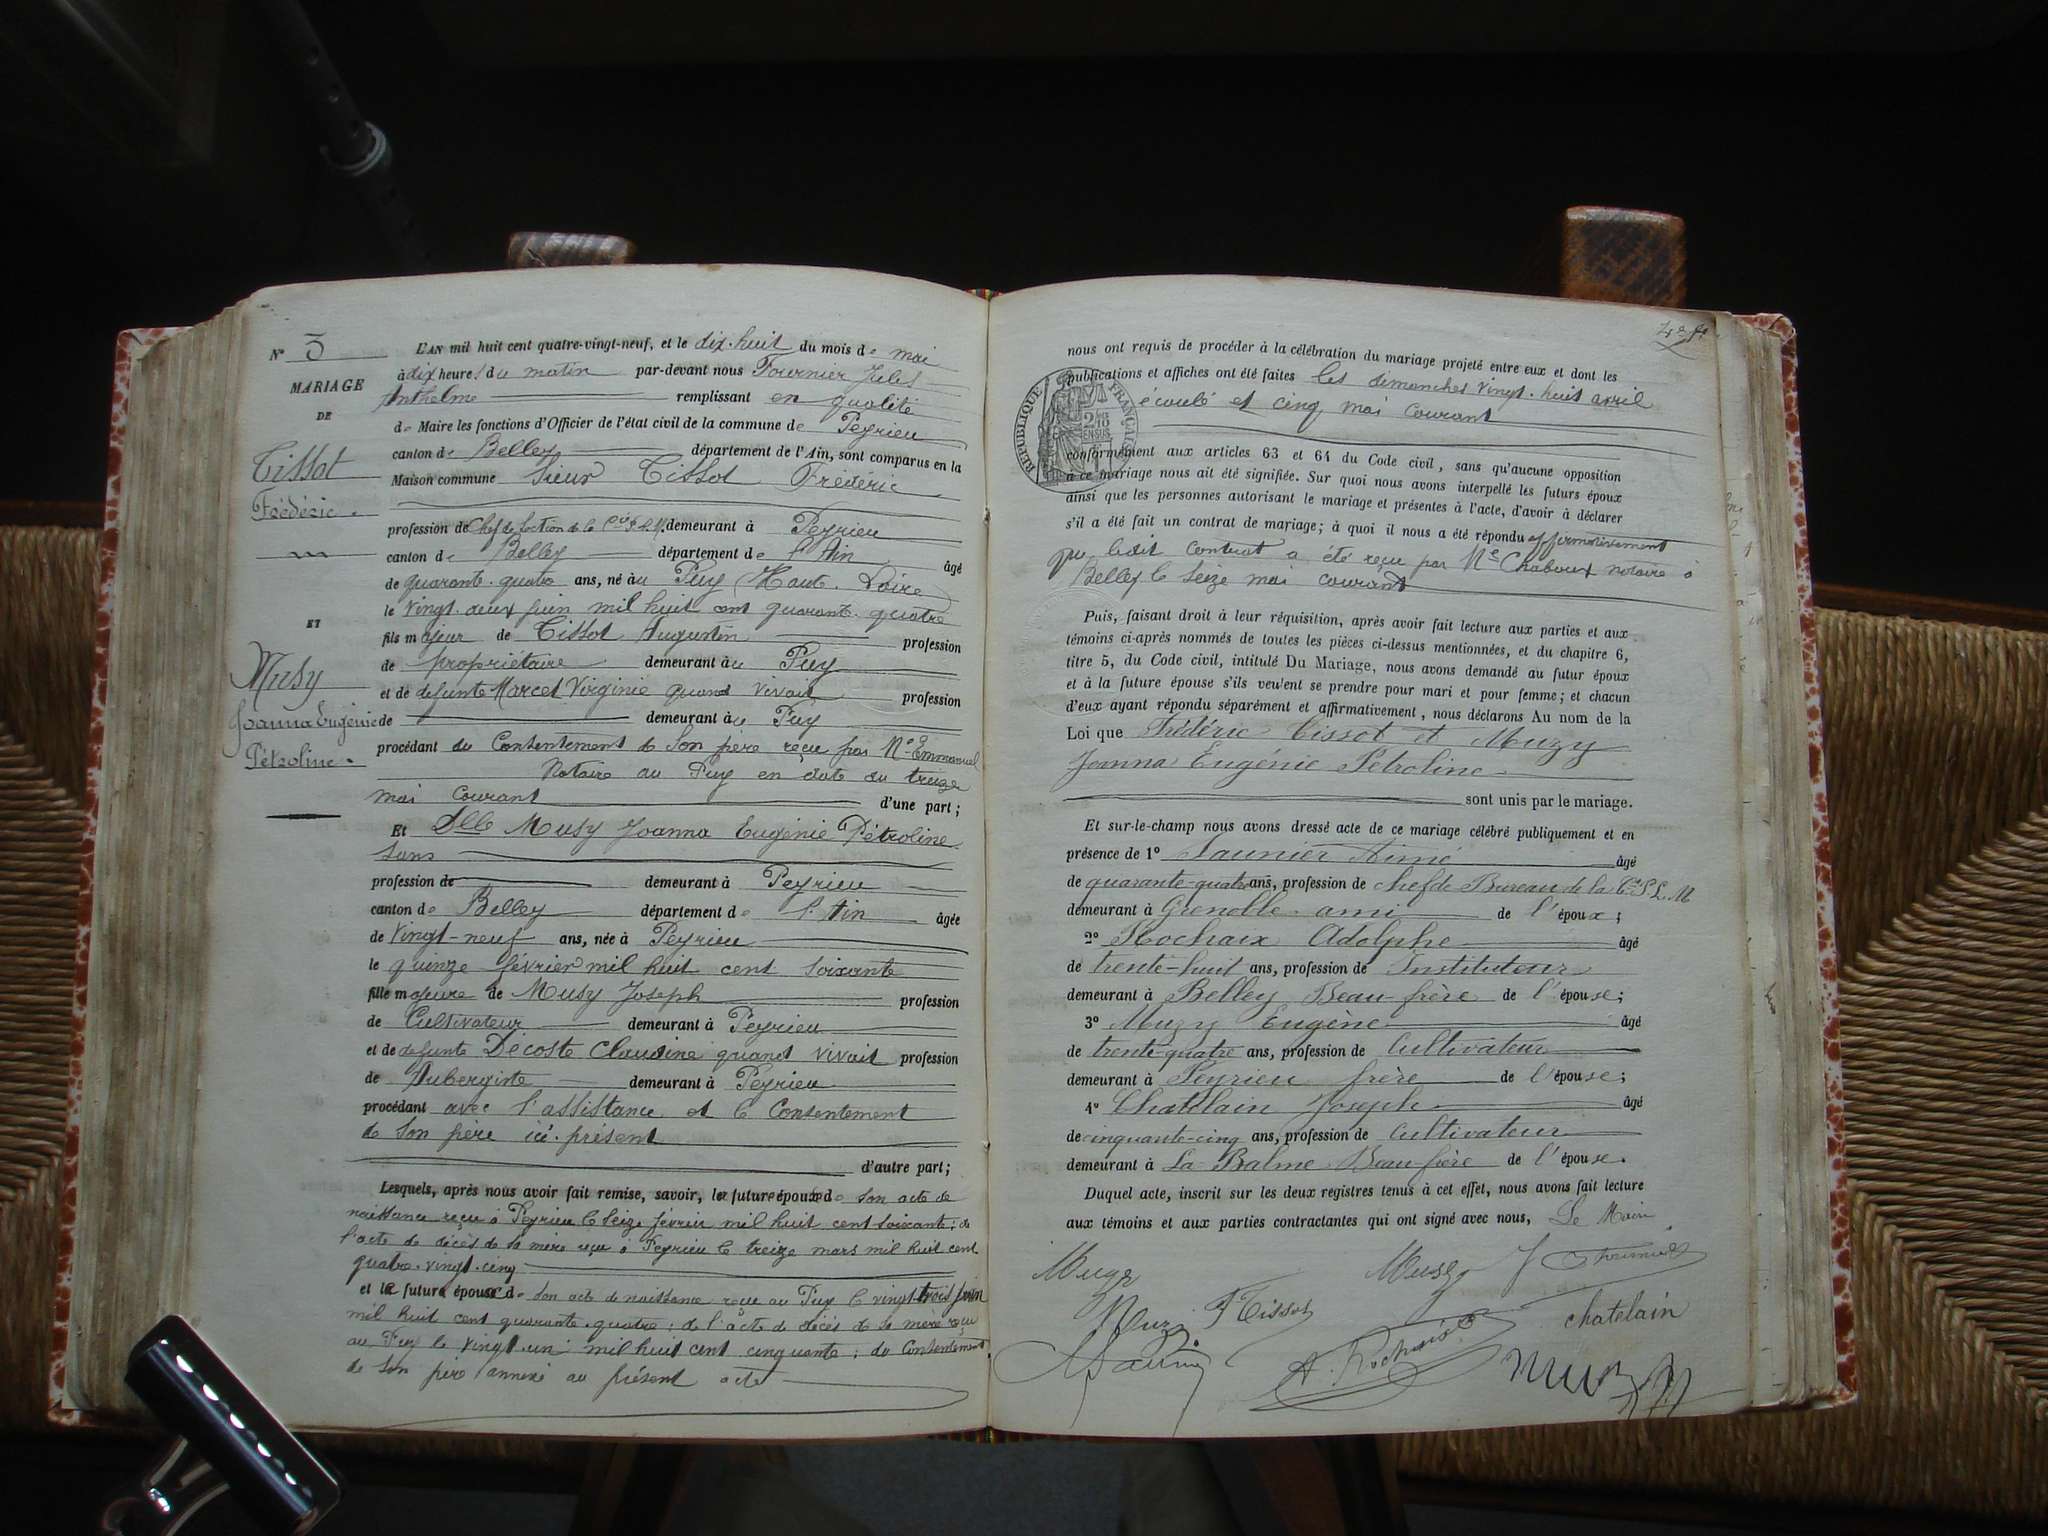 N° 3
MARIAGE
DE
Tissot
Frédéric.
ET
Musy
Joanna Eugénie
Pétroline.
L'AN mil huit cent quatre-vingt-neuf, et le dix-huit du mois de mai
à dix heures du matin par-devant nous Fournier Jules
Anthelme remplissant en qualité
de Maire les fonctions d'Officier de l'état civil de la commune de Peyrieu
canton de Belley département de l'Ain, sont comparus en la
Maison commune Sieur Tissot Frédéric
profession de Chef de Section de la Cie P.L.M. demeurant à Peyrieu
canton de Belley département de l'Ain âgé
de quarante-quatre ans, né au Puy (Haute-Loire)
le vingt-deux juin mil huit cent quarante-quatre
fils majeur de Tissot Augustin profession
de propriétaire demeurant au Puy
et de defunte Marcet Virginie quand vivait profession
de demeurant au Puy
procédant du Consentement de Son père reçu par Me Emmanuel
Notaire au Puy en date du treize
mai courant d'une part;
Et Dlle Musy Joanna Eugénie Pétroline
Sans
profession de demeurant à Peyrieu
canton de Belley département de l'Ain âgée
de vingt-neuf ans, née à Peyrieu
le quinze février mil huit cent soixante
fille majeure de Musy Joseph profession
de Cultivateur demeurant à Peyrieu
et de defunte Decoste Claudine quand vivait profession
de Aubergiste demeurant à Peyrieu
procédant avec l'assistance et le Consentement
de Son père ici-présent
d'autre part;
Lesquels, après nous avoir fait remise, savoir, la future épouse de Son acte de
naissance reçu à Peyrieu le seize février mil huit cent soixante; de
l'acte de décès de sa mère reçu à Peyrieu le treize mars mil huit cent
quatre-vingt-cinq
et le futur époux de son acte de naissance reçu au Puy le vingt-trois juin
mil huit cent quarante-quatre; de l'acte de décès de sa mère reçu
au Puy le vingt-un mil huit cent cinquante; du Consentement
de son père annexé au présent acte
nous ont requis de procéder à la célébration du mariage projeté entre eux et dont les
publications et affiches ont été faites les dimanches vingt-huit avril
écoulé et cinq mai courant
RÉPUBLIQUE FRANÇAISE
conformément aux articles 63 et 64 du Code civil, sans qu'aucune opposition
à ce mariage nous ait été signifiée. Sur quoi nous avons interpellé les futurs époux
ainsi que les personnes autorisant le mariage et présentes à l'acte, d'avoir à déclarer
s'il a été fait un contrat de mariage; à quoi il nous a été répondu affirmativement
que ledit contrat a été reçu par Me Chaboux notaire à
Belley le seize mai courant
Puis, faisant droit à leur réquisition, après avoir fait lecture aux parties et aux
témoins ci-après nommés de toutes les pièces ci-dessus mentionnées, et du chapitre 6,
titre 5, du Code civil, intitulé Du Mariage, nous avons demandé au futur époux
et à la future épouse s'ils veulent se prendre pour mari et pour femme; et chacun
d'eux ayant répondu séparément et affirmativement, nous déclarons Au nom de la
Loi que Frédéric Tissot et Muzy
Joanna Eugénie Pétroline
sont unis par le mariage.
Et sur-le-champ nous avons dressé acte de ce mariage célébré publiquement et en
présence de 1° Saunier Aimé âgé
de quarante-quatre ans, profession de chef de Bureau de la Cie P.L.M
demeurant à Grenoble ami de l'époux;
2° Rochaix Adolphe âgé
de trente-huit ans, profession de Instituteur
demeurant à Belley Beau-frère de l'épouse;
3° Muzy Eugène âgé
de trente-quatre ans, profession de Cultivateur
demeurant à Peyrieu frère de l'épouse;
4° Chatelain Joseph âgé
de cinquante-cinq ans, profession de Cultivateur
demeurant à La Balme Beau-frère de l'épouse.
Duquel acte, inscrit sur les deux registres tenus à cet effet, nous avons fait lecture
aux témoins et aux parties contractantes qui ont signé avec nous, Le Maire
Muzy Musy J Fournier
Muzy F Tissot chatelain
A. Rochaix muzy